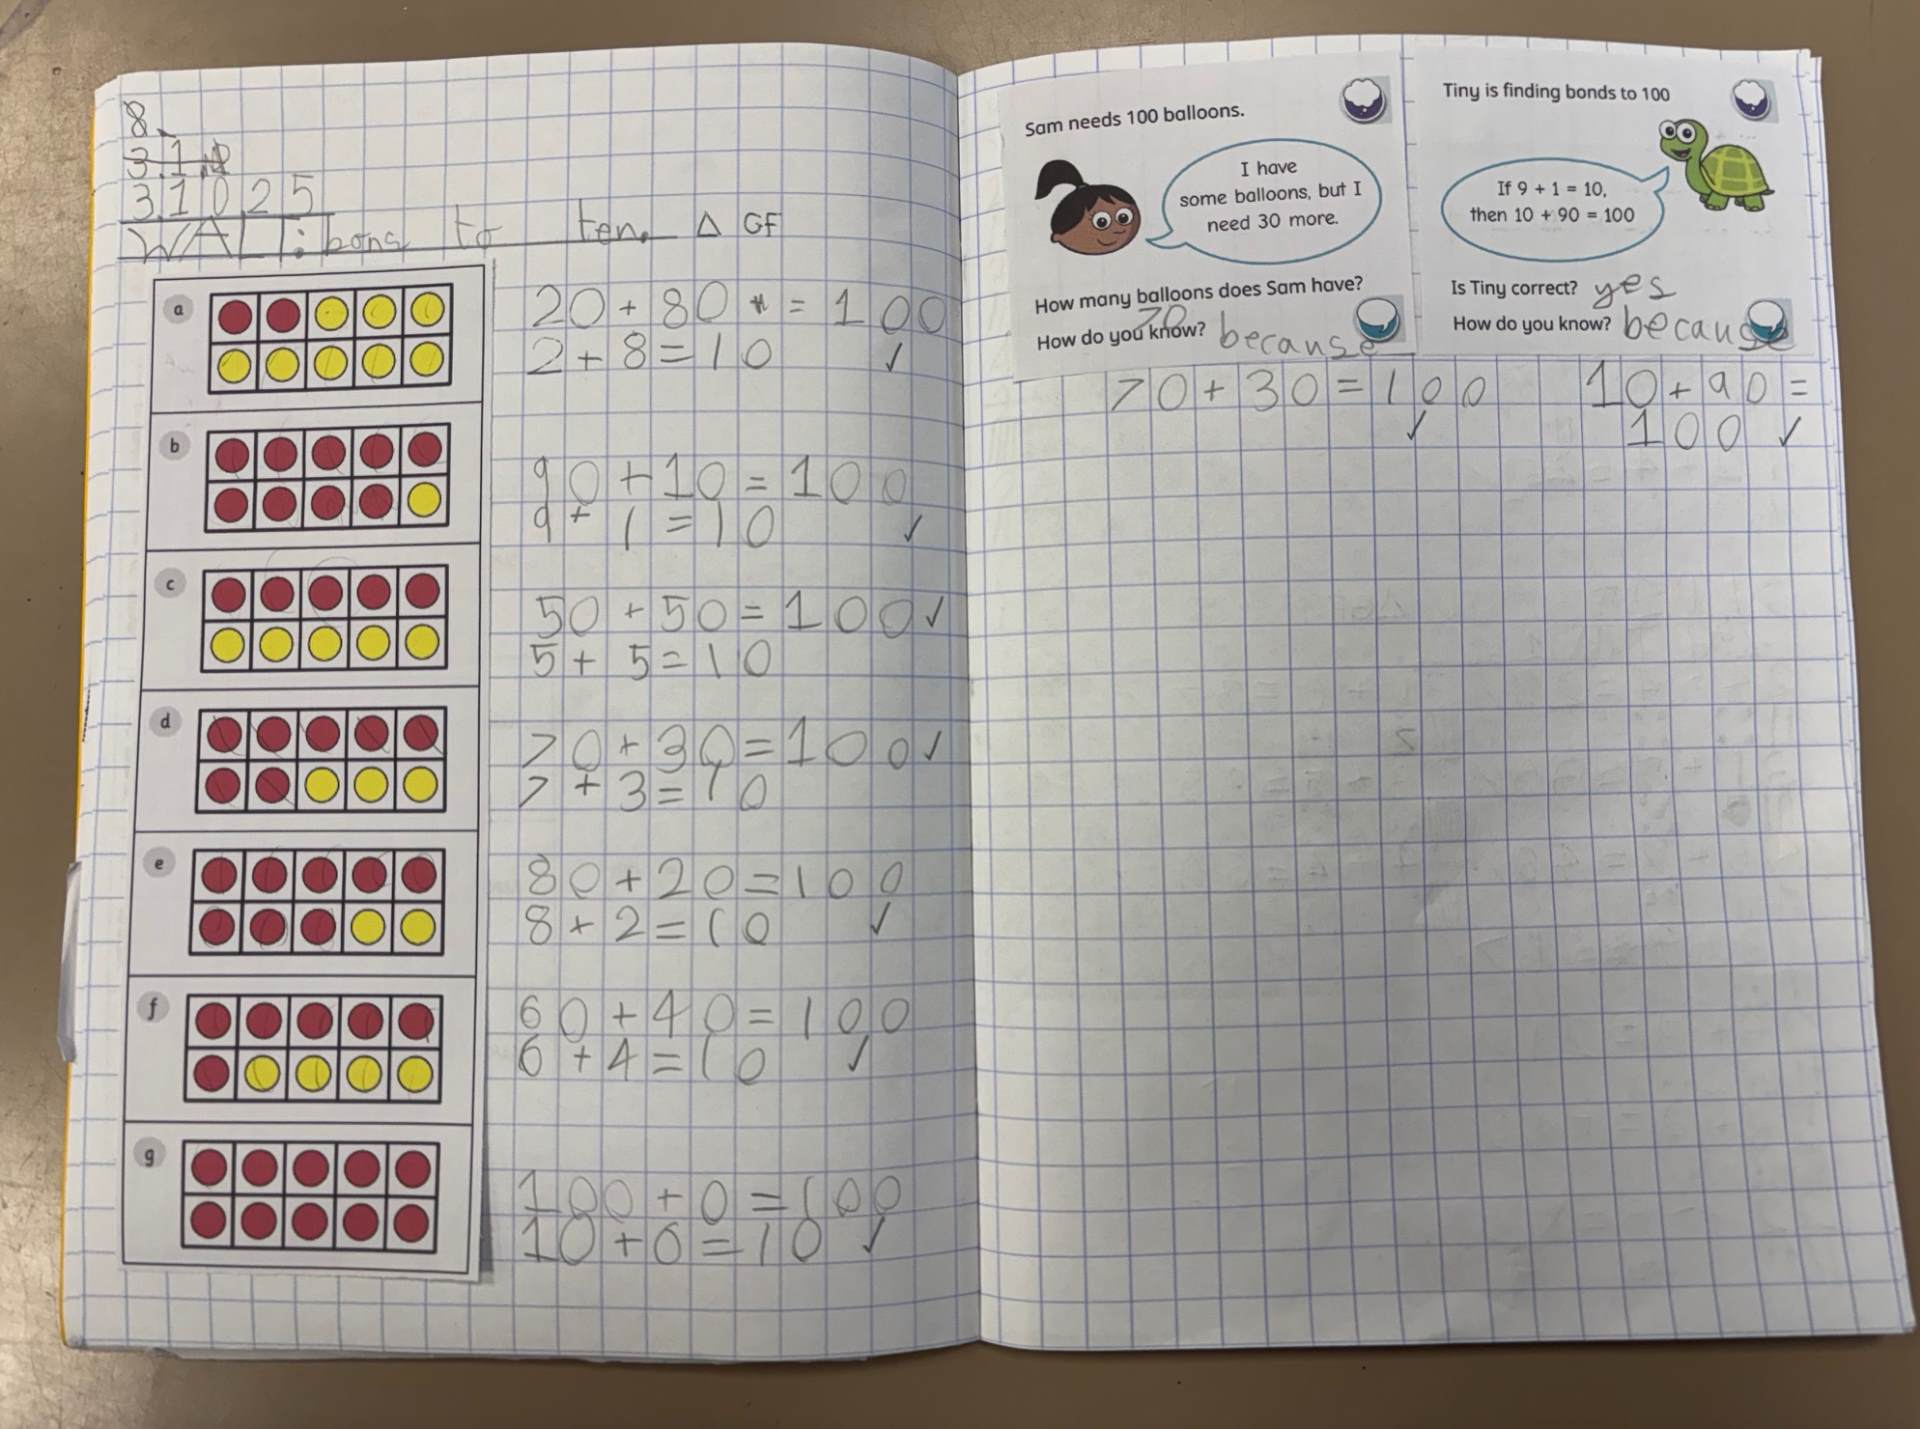 8
3.1.
31025
WALT: bons to ten. △ GF
a
20 + 80 = 100
2 + 8 = 10 ✓
b
90 + 10 = 100
9 + 1 = 10 ✓
c
50 + 50 = 100 ✓
5 + 5 = 10
d
70 + 30 = 100 ✓
7 + 3 = 10
e
80 + 20 = 100
8 + 2 = 10 ✓
f
60 + 40 = 100
6 + 4 = 10 ✓
g
100 + 0 = 100
10 + 0 = 10 ✓
Sam needs 100 balloons.
I have
some balloons, but I
need 30 more.
How many balloons does Sam have?
70
How do you know? because
70 + 30 = 100
✓
Tiny is finding bonds to 100
If 9 + 1 = 10,
then 10 + 90 = 100
Is Tiny correct? yes
How do you know? because
10 + 90 =
100 ✓